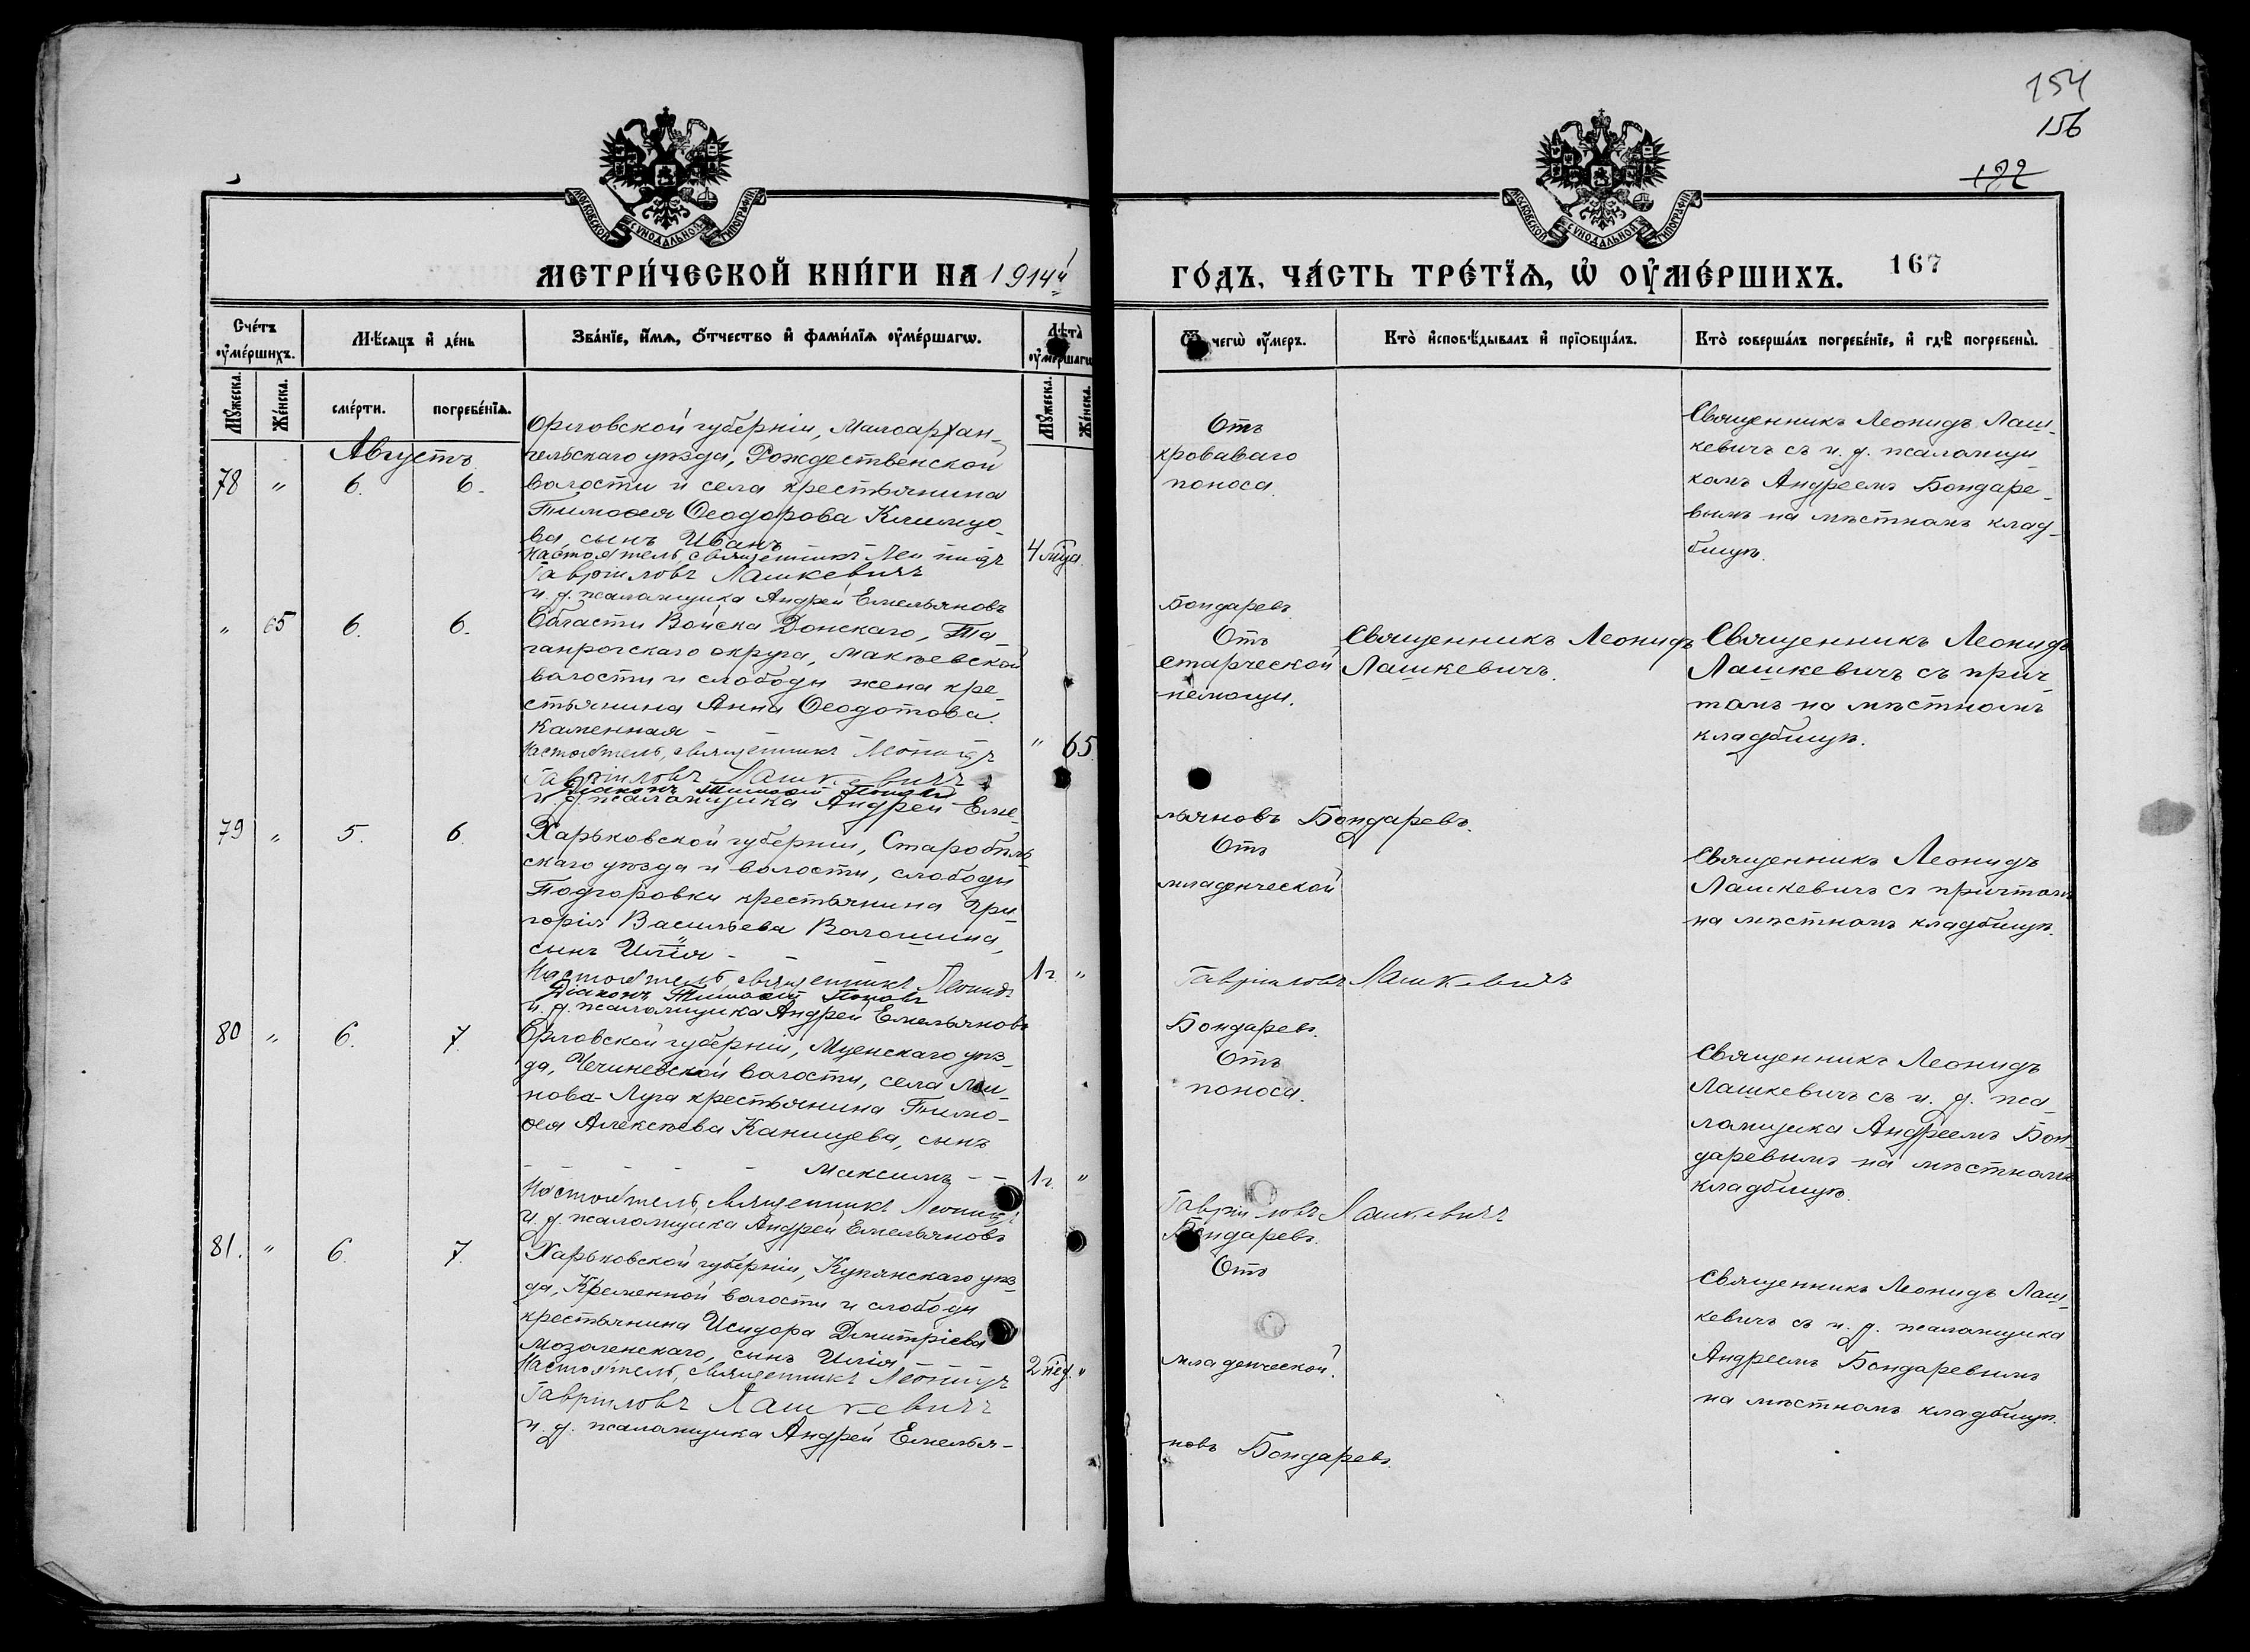 154
156
122
МОСКОВСКОЙ СѴНОДАЛЬНОЙ ТИПОГРАФІИ
МОСКОВСКОЙ СѴНОДАЛЬНОЙ ТИПОГРАФІИ
МЕТРИ́ЧЕСКОЙ КНИ́ГИ НА 1914й
ГО́ДЪ, ЧА́СТЬ ТРЕ́ТЇѦ, Ѡ҆ ОУ҆МЕ́РШИХЪ. 167
Сче́тъ оу҆ме́ршихъ.
Мѣ́сяцъ и҆ де́нь
Зва́нїе, и҆́мѧ, ѻ҆́тчество и҆ фами́лїѧ оу҆ме́ршагѡ.
Лѣ́та оу҆ме́ршагѡ
Ѿ чегѡ̀ оу҆́меръ.
Кто̀ и҆сповѣ́дывалъ и҆ прїѻбща́лъ.
Кто̀ соверша́лъ погребе́нїе, и҆ гдѣ̀ погребены̀.
Мꙋ́жеска.
Же́нска.
сме́рти.
погребе́нїѧ.
Мꙋ́жеска.
Же́нска.
Августъ
78 " 6. 6.
Орловской губерніи, Малоархан-
гельскаго уѣзда, Рождественской
волости и села крестьянина
Тимоѳея Ѳеодорова Климуо-
ва, сынъ Иванъ
4 м-ца
Отъ
кроваваго
поноса.
Священникъ Леонидъ Лаш-
кевичъ съ и. д. псаломщи
комъ Андреемъ Бондаре-
вымъ на мѣстномъ клад-
бищѣ.
Настоятель, священникъ Леонидъ
Гавріиловъ Лашкевичъ
и. д. псаломщика Андрей Емельяновъ
Бондаревъ.
" 65 6. 6.
Области Войска Донскаго, Та-
ганрогскаго округа, Макѣевской
волости и слободы жена кре-
стьянина Анна Ѳеодотова
Каменная -
" 65.
Отъ
старческой
немощи.
Священникъ Леонидъ
Лашкевичъ.
Священникъ Леонидъ
Лашкевичъ съ прич-
томъ на мѣстномъ
кладбищѣ.
Настоятель, священникъ Леонидъ
Гавріиловъ Лашкевичъ
Діаконъ Тимоѳей Поповъ
и. д. псаломщика Андрей Емe-
льяновъ Бондаревъ.
79 " 5. 6.
Харьковской губерніи, Старобѣль-
скаго уѣзда и волости, слободы
Подгоровки крестьянина Гри-
горія Васильева Волошина,
сынъ Илія -
1 г. "
Отъ
младенческой
Священникъ Леонидъ
Лашкевичъ съ причтомъ
на мѣстномъ кладбищѣ.
Настоятель, священникъ Леонидъ
Гавріиловъ Лашкевичъ
Діаконъ Тимоѳей Поповъ
и. д. псаломщика Андрей Емельяновъ
Бондаревъ.
80 " 6. 7.
Орловской губерніи, Мценскаго уѣз-
да, Чегиневской волости, села
нова-Луга крестьянина Тимо-
ѳея Алексѣева Канищева, сынъ
Максимъ - -
1 г. "
Отъ
поноса.
Священникъ Леонидъ
Лашкевичъ съ и. д. пса-
ломщика Андреемъ Бон-
даревымъ на мѣстномъ
кладбищѣ.
Настоятель, священникъ Леонидъ
Гавріиловъ Лашкевичъ
и. д. псаломщика Андрей Емельяновъ
Бондаревъ.
81. " 6. 7.
Харьковской губерніи, Купянскаго уѣз-
да, Кременной волости и слободы
крестьянина Исидора Дмитріева
сынъ Илія
2 нед. "
Отъ
младенческой.
Священникъ Леонидъ Лаш-
кевичъ съ и. д. псаломщика
Андреемъ Бондаревымъ
на мѣстномъ кладбищѣ.
Настоятель, священникъ Леонидъ
Гавріиловъ Лашкевичъ
и. д. псаломщика Андрей Емелья-
новъ Бондаревъ.